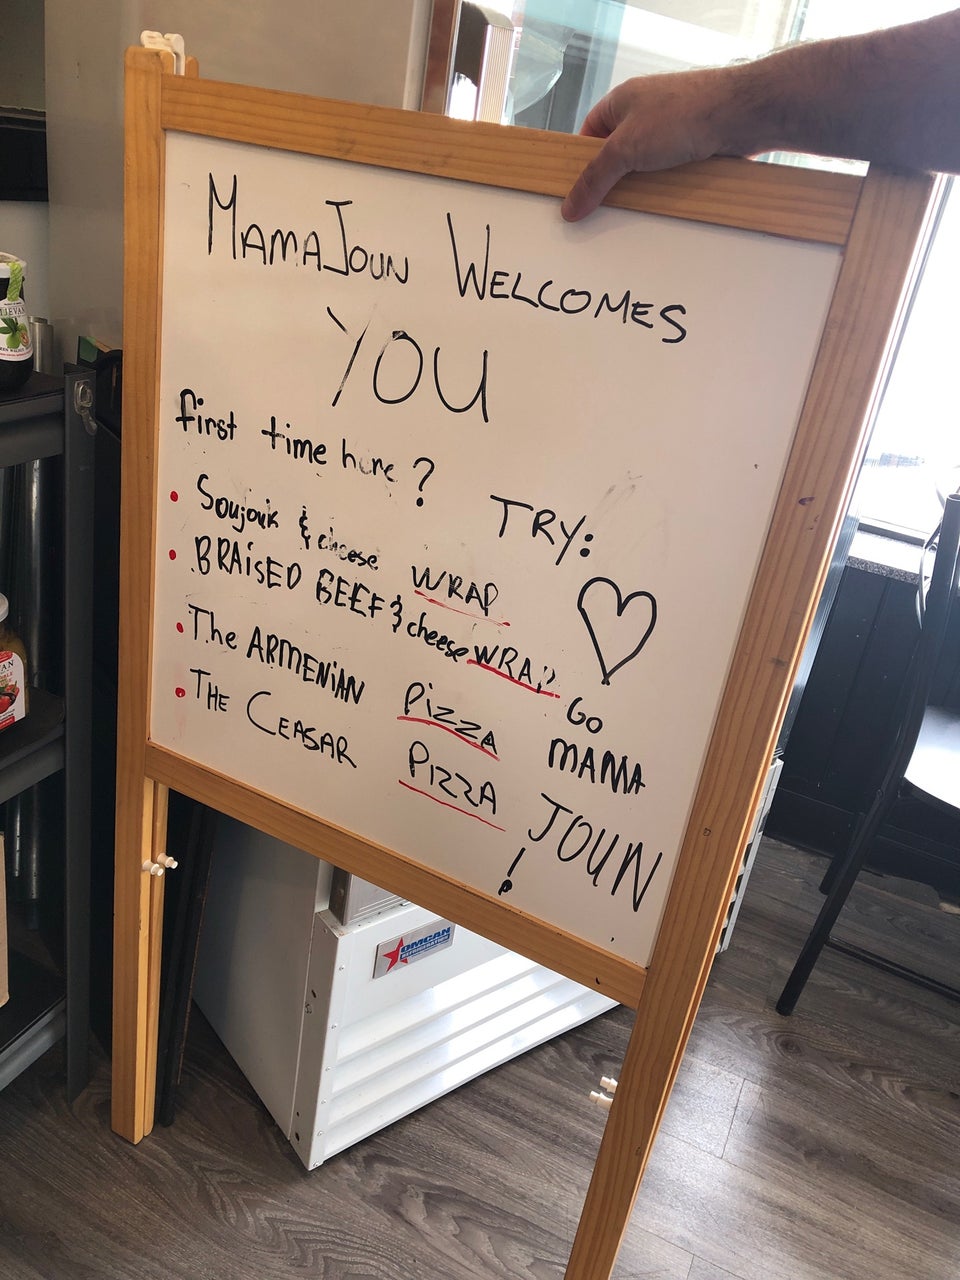 MAMAJOUN WELCOMES
YOU
first time here?
TRY:
• Soujouk & cheese WRAP
• BRAiSED BEEF & cheese WRAP
• The ARMENiAN Pizza
• THE CEASAR PIZZA
GO
MAMA
JOUN
!
OMCAN